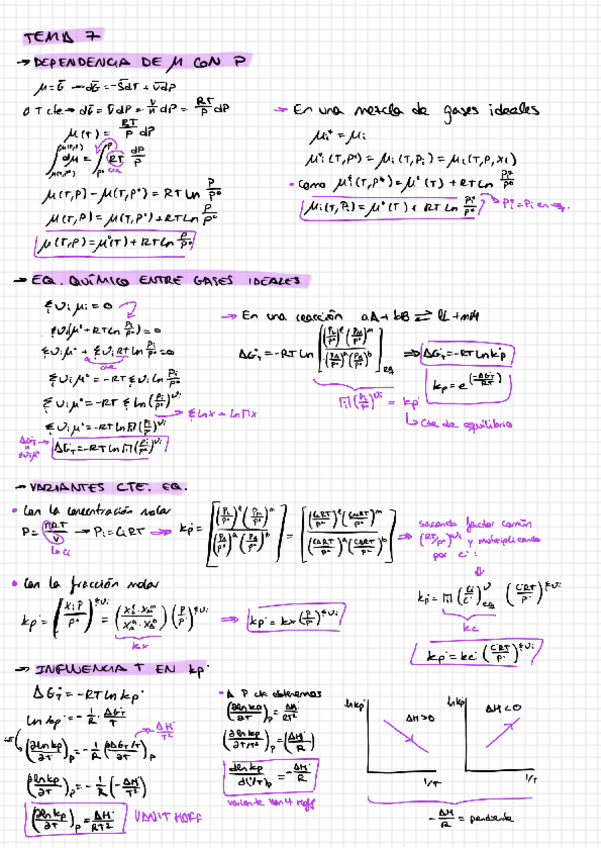 TEMA 7
→ DEPENDENCIA DE μ CON P
μ = G̅ → dG̅ = -S̅dT + V̅dP
a T cte → dG̅ = V̅dP = V/n dP = RT/P dP
μ(T) = RT/P dP
∫ dμ = ∫ RT dP/P
cte
μ(T,P) - μ(T,P°) = RT ln P/P°
μ(T,P) = μ(T,P°) + RT ln P/P°
μ(T,P) = μ°(T) + RT ln P/P°
→ En una mezcla de gases ideales
μi* = μi
μi*(T,Pi) = μi(T,Pi) = μi(T,P,xi)
• Como μi*(T,P*) = μ°(T) + RT ln Pi*/P°
μi(T,Pi) = μ°(T) + RT ln Pi*/P° → Pi* = Pi en
→ EQ. QUÍMICO ENTRE GASES IDEALES
Σνiμi = 0
Σνi(μ° + RT ln Pi/P°) = 0
Σνiμ° + ΣνiRT ln Pi/P° = 0
cte
Σνiμ° = -RT Σνi ln Pi/P°
Σνiμ° = -RT Σ ln (Pi/P°)^νi
→ Σ ln x = ln Πx
Σνiμ° = -RT ln Π(Pi/P°)^νi
ΔG°T = Σνiμ° → ΔG°T = -RT ln Π(Pi/P°)^νi
→ En una reacción aA + bB ⇌ lL + mM
ΔG°T = -RT ln [(PL/P°)^l (PM/P°)^m / (PA/P°)^a (PB/P°)^b]eq ⇒ ΔG°T = -RT ln kp°
kp = e^(-ΔG°/RT)
Π(Pi/P°)^νi = kp°
↳ Cte de equilibrio
→ VARIANTES CTE. EQ.
• Con la concentración molar
P = nRT/V → Pi = CiRT → kp° = [(PL/P°)^l (PM/P°)^m / (PA/P°)^a (PB/P°)^b] = [(CLRT/P°)^l (CMRT/P°)^m / (CART/P°)^a (CBRT/P°)^b] ⇒ sacando factor común
↳ Ci
(RT/P°)^Σνi y multiplicando
por c°:
⇓
kp° = Π(Ci/C°)^νi eq (C°RT/P°)^Σνi
kc
kp° = kc° (C°RT/P°)^Σνi
• Con la fracción molar
kp° = (XiP/P°)^Σνi = (XL^l · XM^m / XA^a · XB^b) (P/P°)^Σνi ⇒ kp° = kx (P/P°)^Σνi
kx
→ INFLUENCIA T EN kp°
ΔG°T = -RT ln kp°
ln kp° = -1/R · ΔG°T/T
(∂ln kp/∂T)P = -1/R (∂ΔG°T/T/∂T)P → -ΔH°/T²
(∂ln kp/∂T)P = -1/R (-ΔH°/T²)
(∂ln kp/∂T)P = ΔH°/RT² VAN'T HOFF
• A P cte obtenemos
(∂ln kp/∂T)P = ΔH°/RT²
(∂ln kp/∂T/T²)P = (ΔH°/R)
(d ln kp/d(1/T))P = -ΔH°/R
variante Van't Hoff
ln kp
ΔH>0
1/T
ln kp
ΔH<0
1/T
-ΔH/R = pendiente